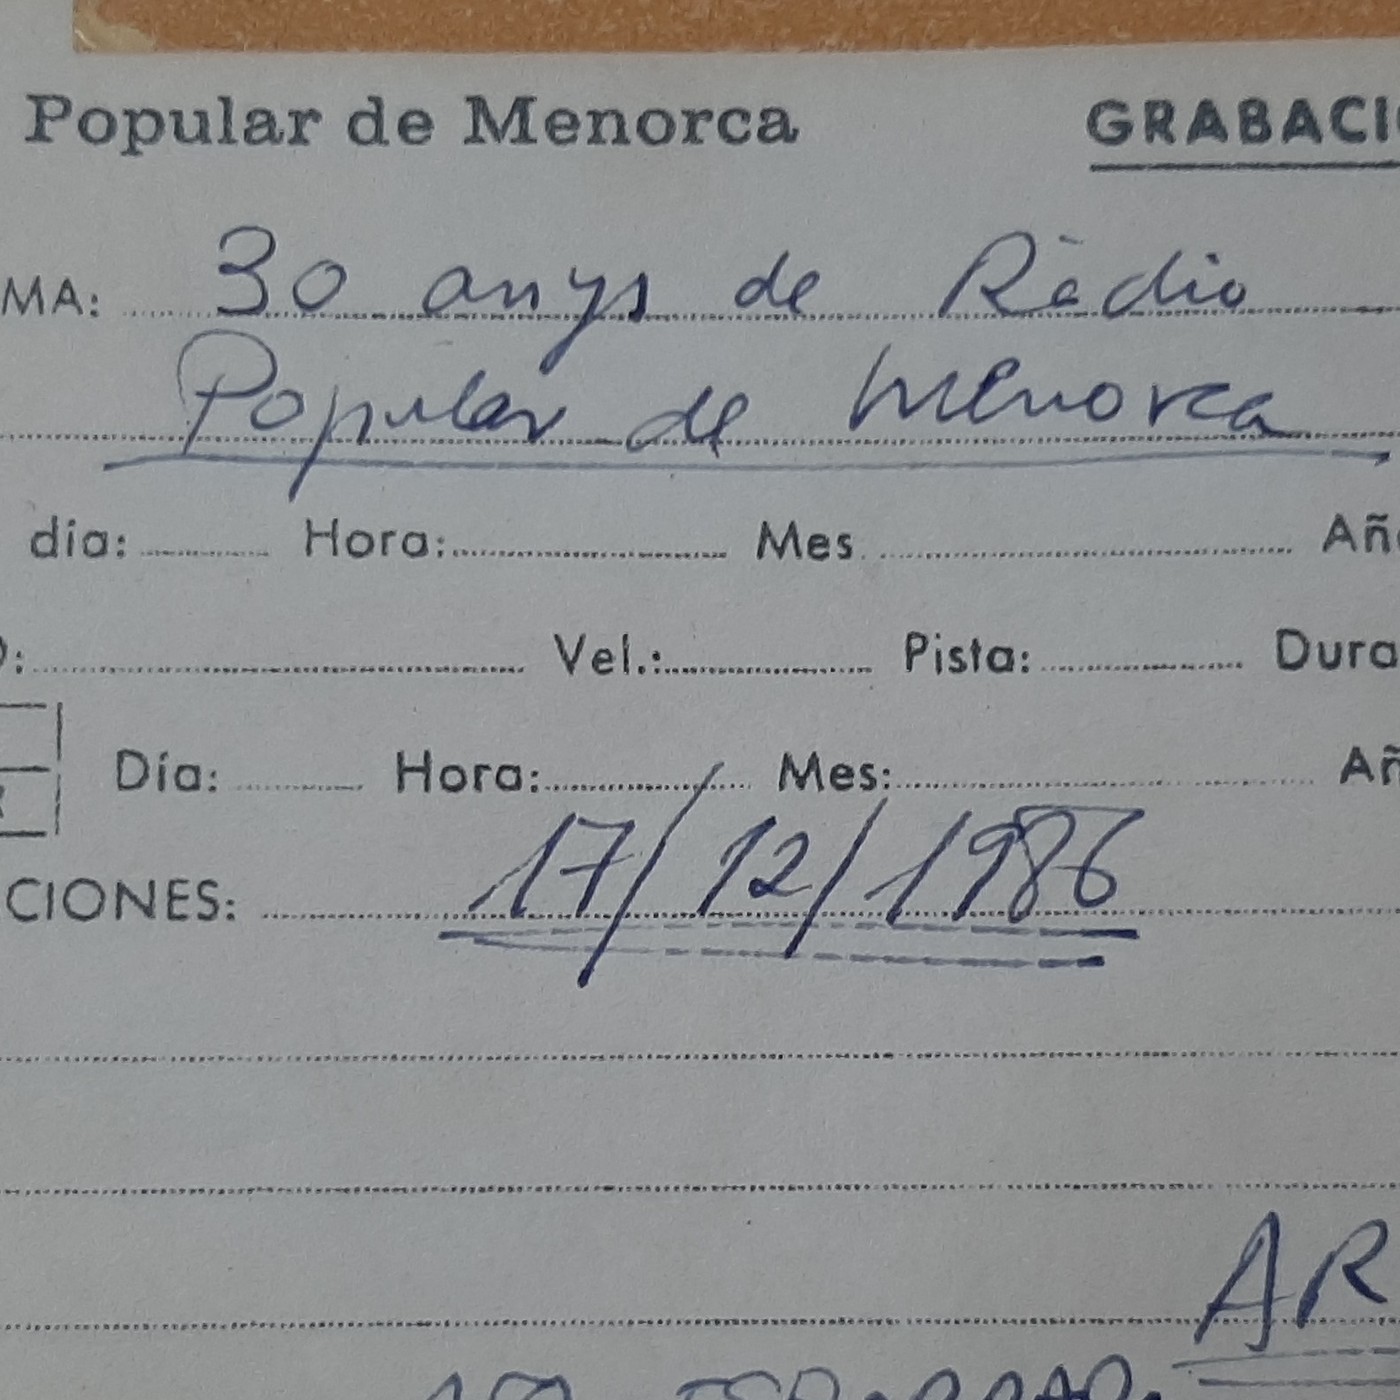 Popular de Menorca GRABACI
MA: 30 anys de Ràdio
Popular de Menorca
día: Hora: Mes Añ
O: Vel.: Pista: Dura
Día: Hora: Mes: Añ
CIONES: 17/12/1986
AR